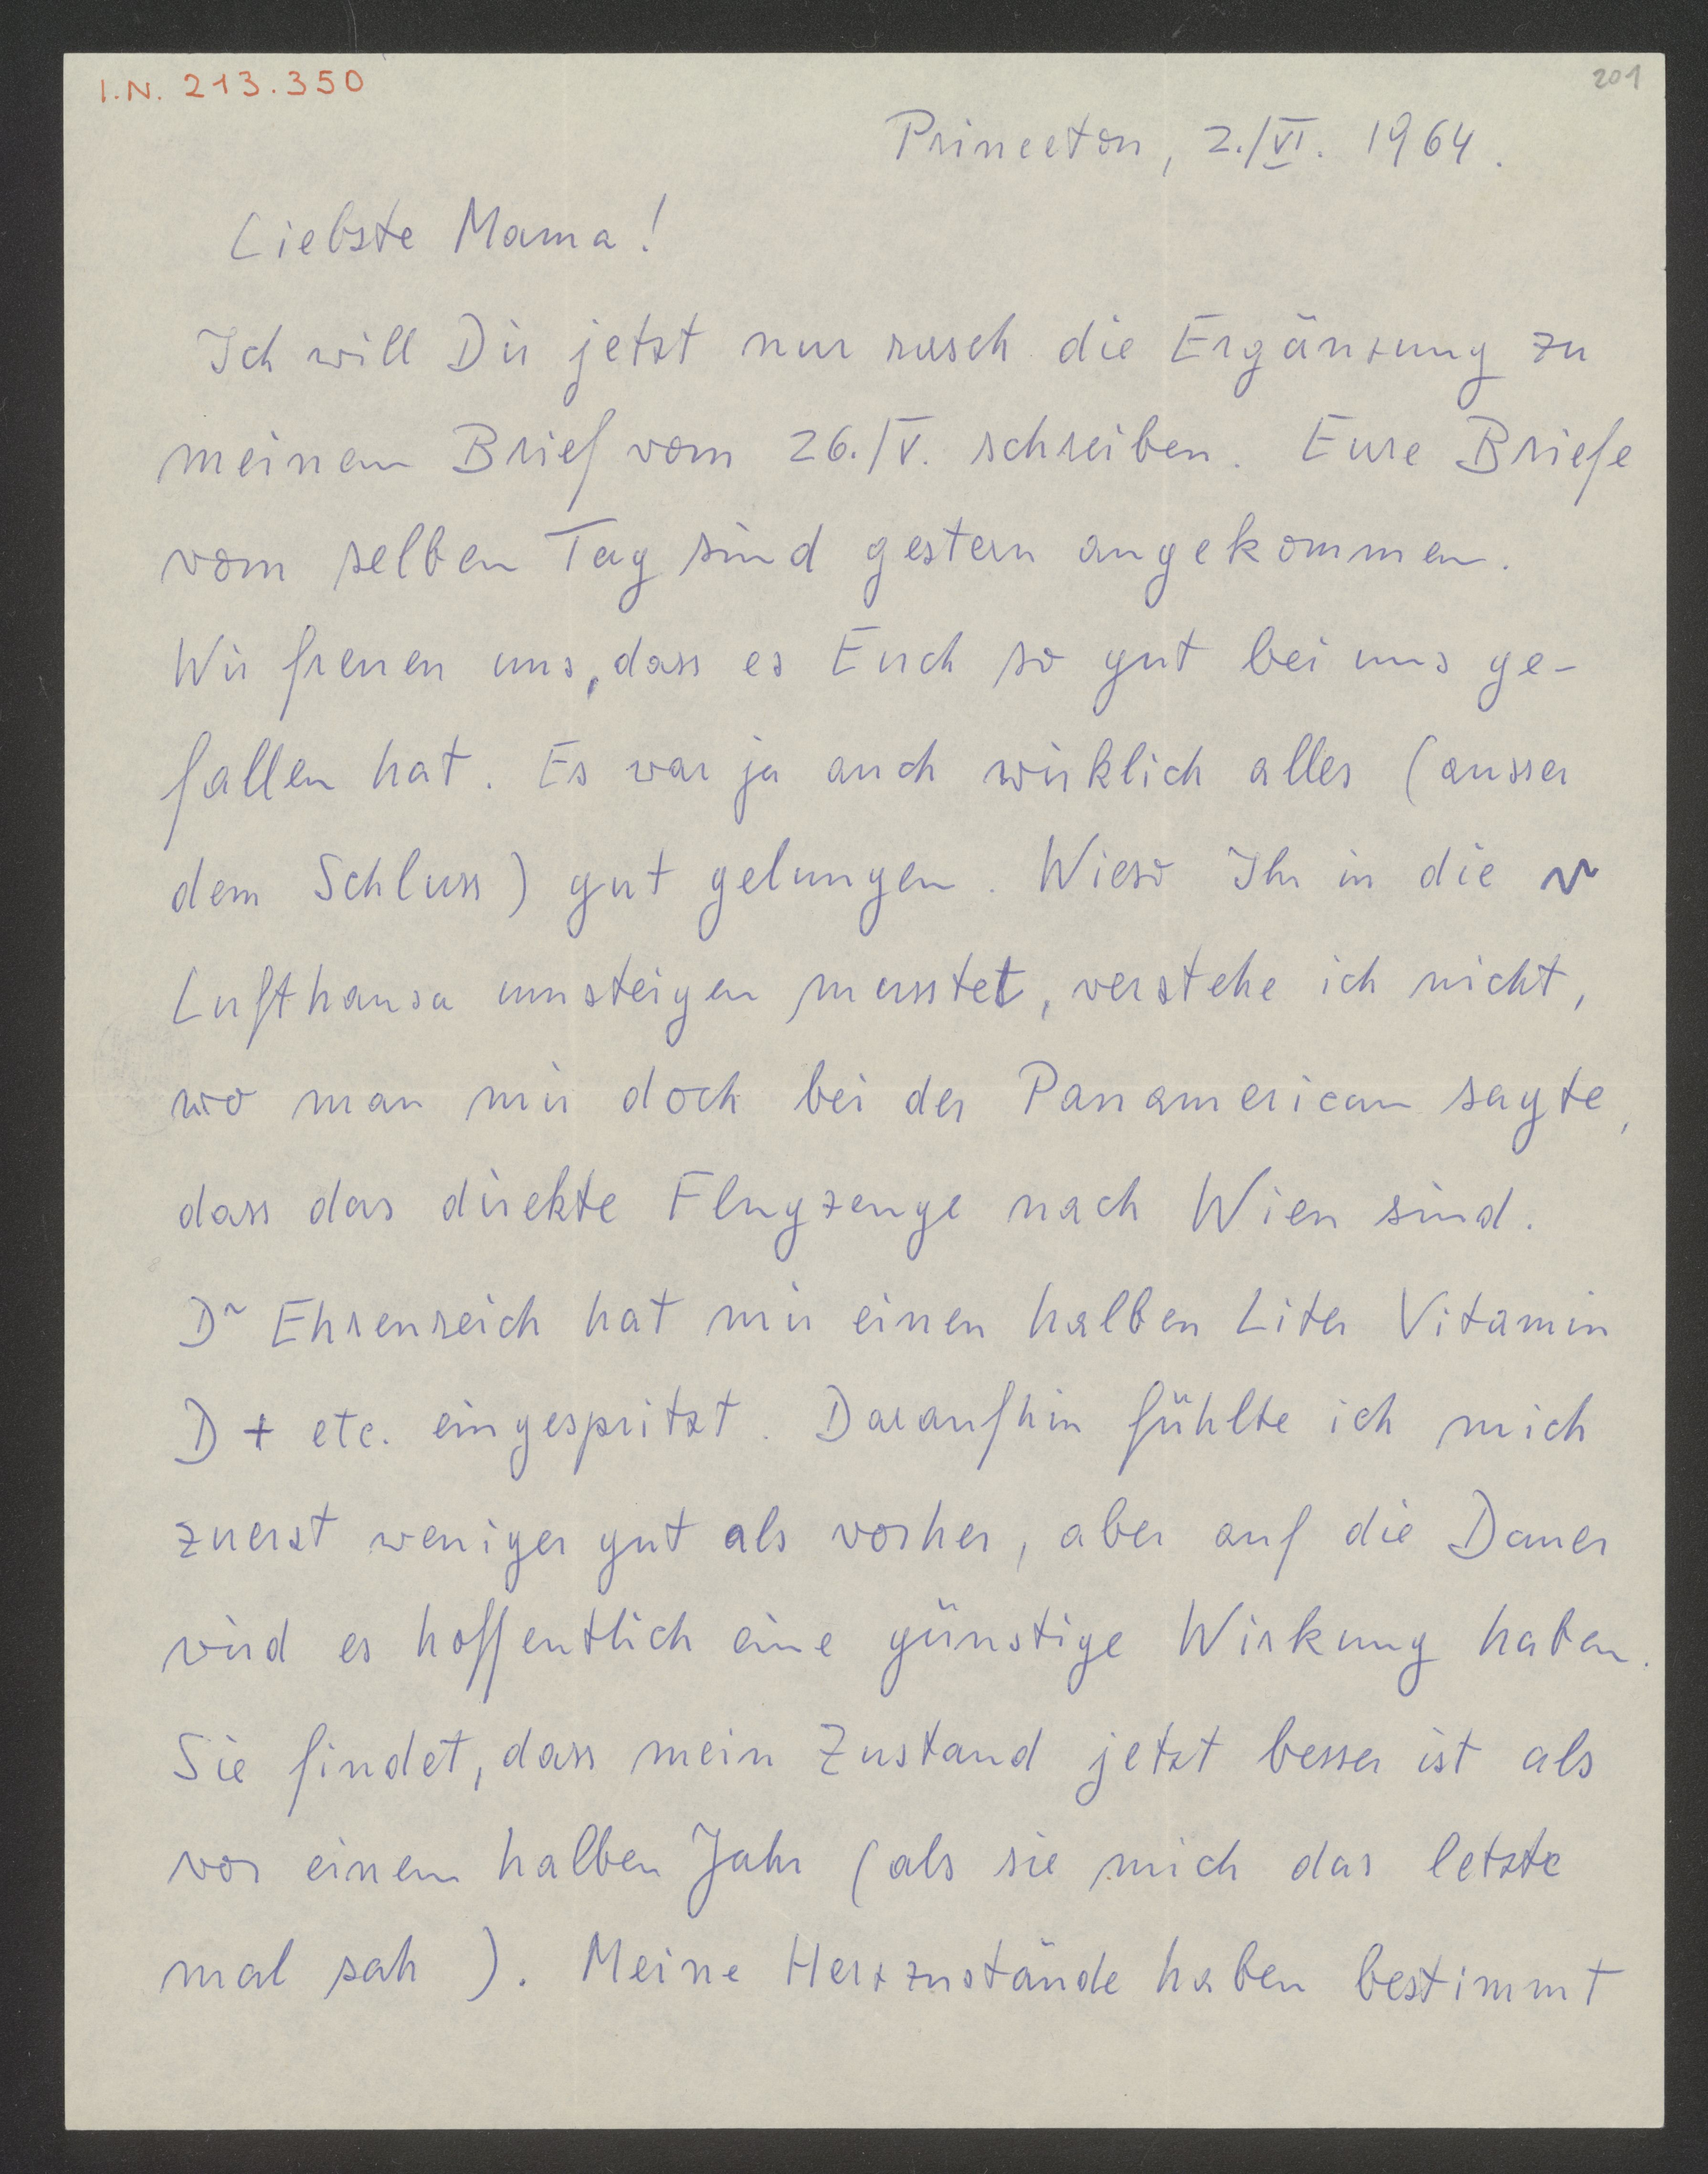 I.N. 213.350
201
Princeton, 2./VI. 1964.
Liebste Mama!
Ich will Dir jetzt nur rasch die Ergänzung zu
meinem Brief vom 26./V. schreiben. Eure Briefe
vom selben Tag sind gestern angekommen.
Wir freuen uns, dass es Euch so gut bei uns ge-
fallen hat. Es war ja auch wirklich alles (ausser
dem Schluss) gut gelungen. Wieso Ihr in die
Lufthansa umsteigen musstet, verstehe ich nicht,
wo man mir doch bei der Panamerican sagte,
dass das direkte Flugzeuge nach Wien sind.
Dr Ehrenreich hat mir einen halben Liter Vitamin
D + etc. eingespritzt. Daraufhin fühlte ich mich
zuerst weniger gut als vorher, aber auf die Dauer
wird es hoffentlich eine günstige Wirkung haben.
Sie findet, dass mein Zustand jetzt besser ist als
vor einem halben Jahr (als sie mich das letzte
mal sah). Meine Herzzustände haben bestimmt